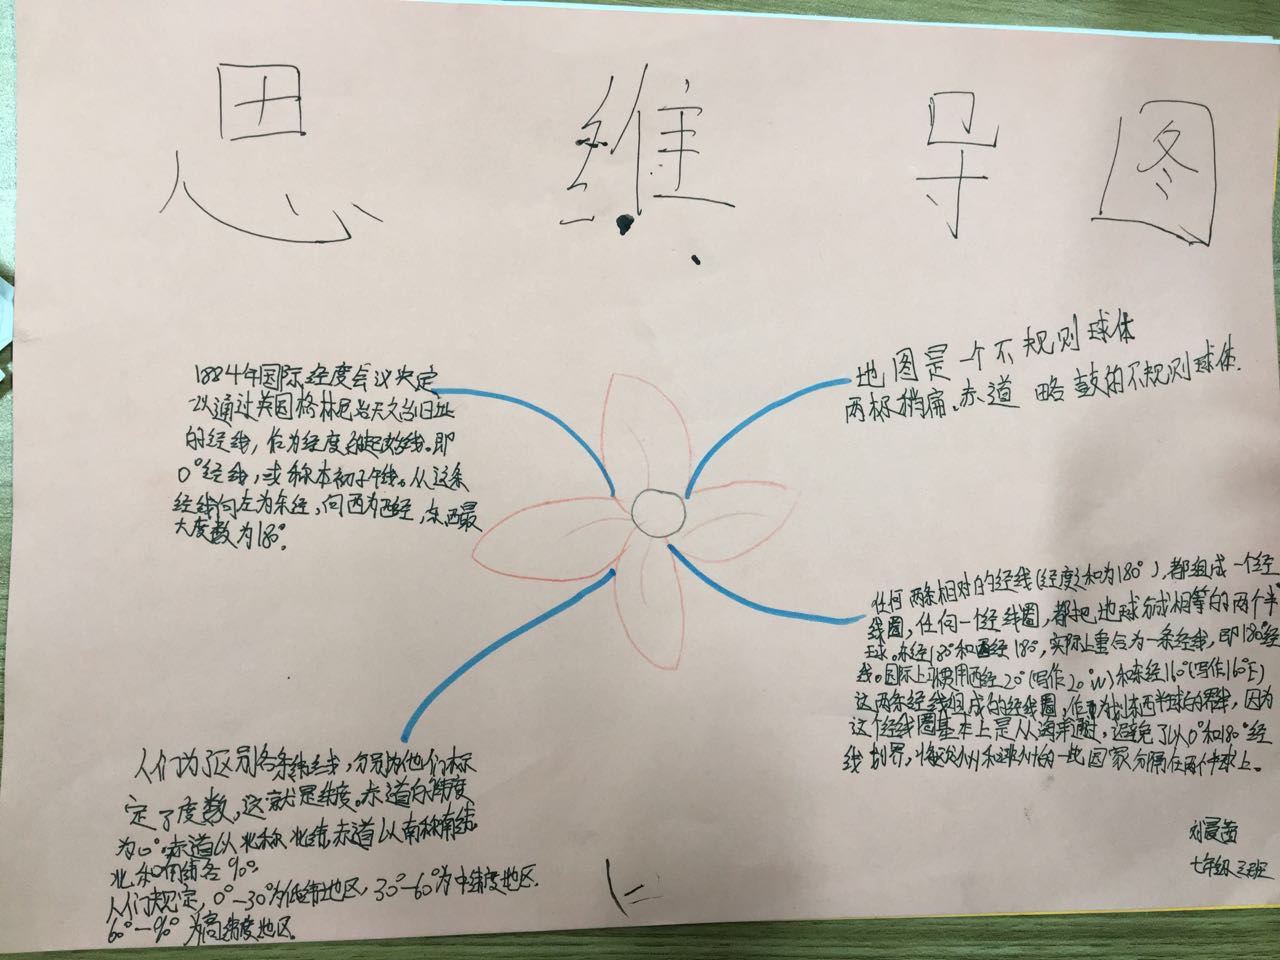 思维导图
1884年国际经度会议决定
以通过英国格林尼治天文台旧址
的经线,作为经度的起始线。即
0°经线,或称本初子午线。从这条
经线向左为东经,向西为西经,东西最
大度数为180°.
地图是一个不规则球体
两极稍痛。赤道 略鼓的不规则球体.
任何两条相对的经线(经度之和为180°),都组成一个经
线圈,任何一个经线圈,都把地球分成相等的两个半
球。东经180°和西经180°,实际上重合为一条经线,即180°经
线。国际上习惯用西经20°(写作20°W)和东经160°(写作160°E)
这两条经线组成的经线圈,作为划东西半球的界线,因为
这个经线圈基本上是从海洋通过,避免了以0°和180°经
线划界,将欧洲和非洲的一些国家分隔在两个半球上。
人们为了区别各条纬线,分别为他们标
定了度数,这就是纬度。赤道的纬度
为0°.赤道以北称北纬,赤道以南称南纬.
北和南纬各90°.
人们规定,0°—30°为低纬地区,30°—60°为中纬度地区.
60°—90°为高纬度地区.
七年级三班